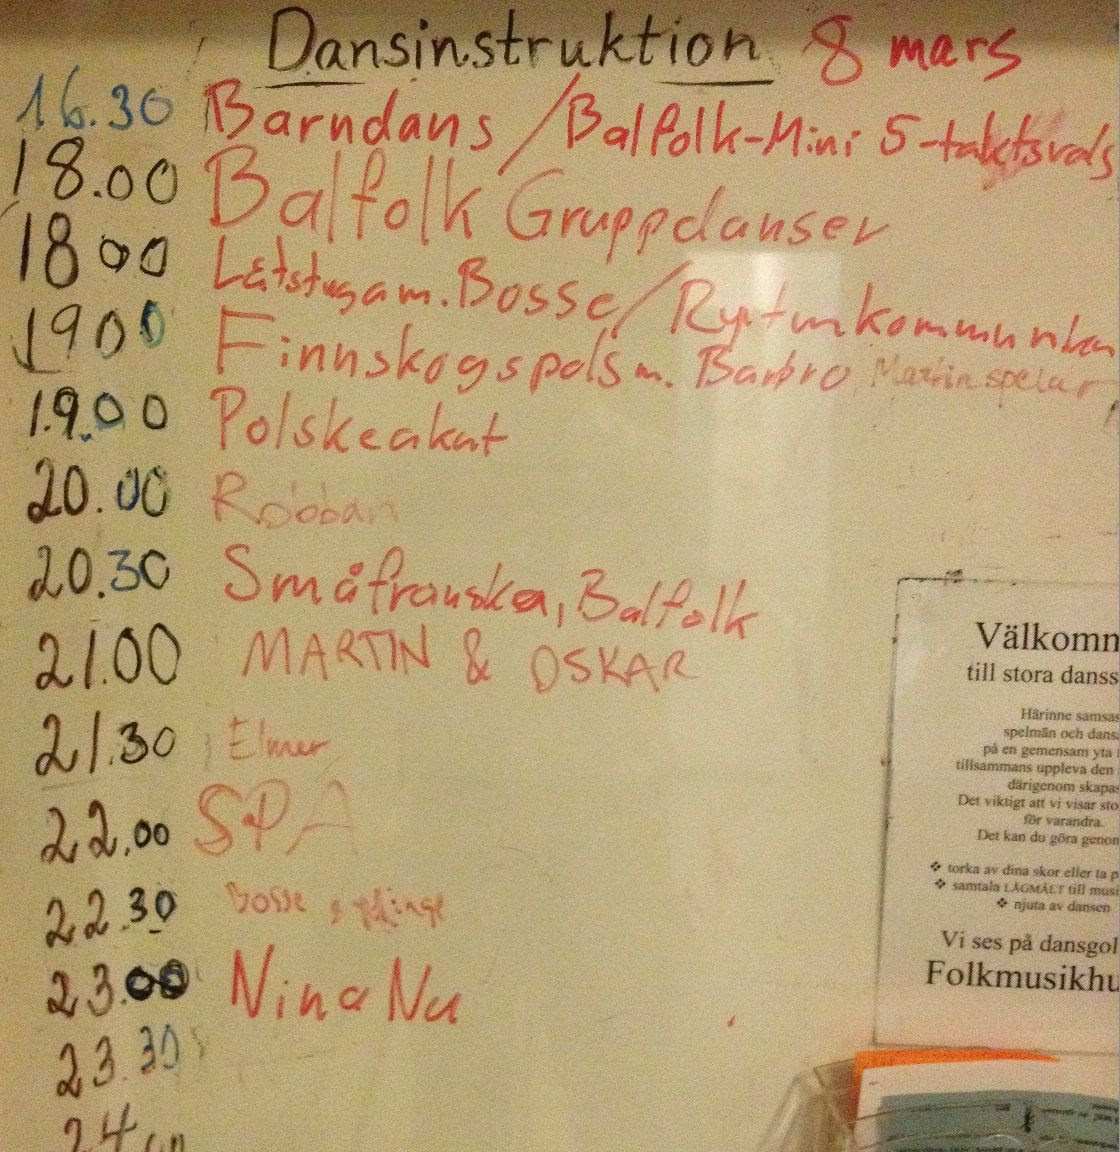 Dansinstruktion 8 mars
16.30 Barndans / Balfolk-Mini 5-taktsvals
18.00 Balfolk Gruppdanser
18 00 Låtstuga m. Bosse/
19 00 Finnskogspols m. Barbro Martin spelar
19.00 Polskeakat
20.00 Robban
20.30 Småfranska, Balfolk
21.00 MARTIN & OSKAR
21.30 Elmer
22.00 SPA
22.30 Bosse
23.00 Nina Nu
23.30
24
Välkomn
till stora danss
Härinne samsas
spelmän och dans
på en gemensam yta
tillsammans uppleva den
därigenom skapas
Det viktigt att vi visar sto
för varandra.
Det kan du göra genon
❖ torka av dina skor eller ta p
❖ samtala LÅGMÄLT till musi
❖ njuta av dansen
Vi ses på dansgol
Folkmusikhu